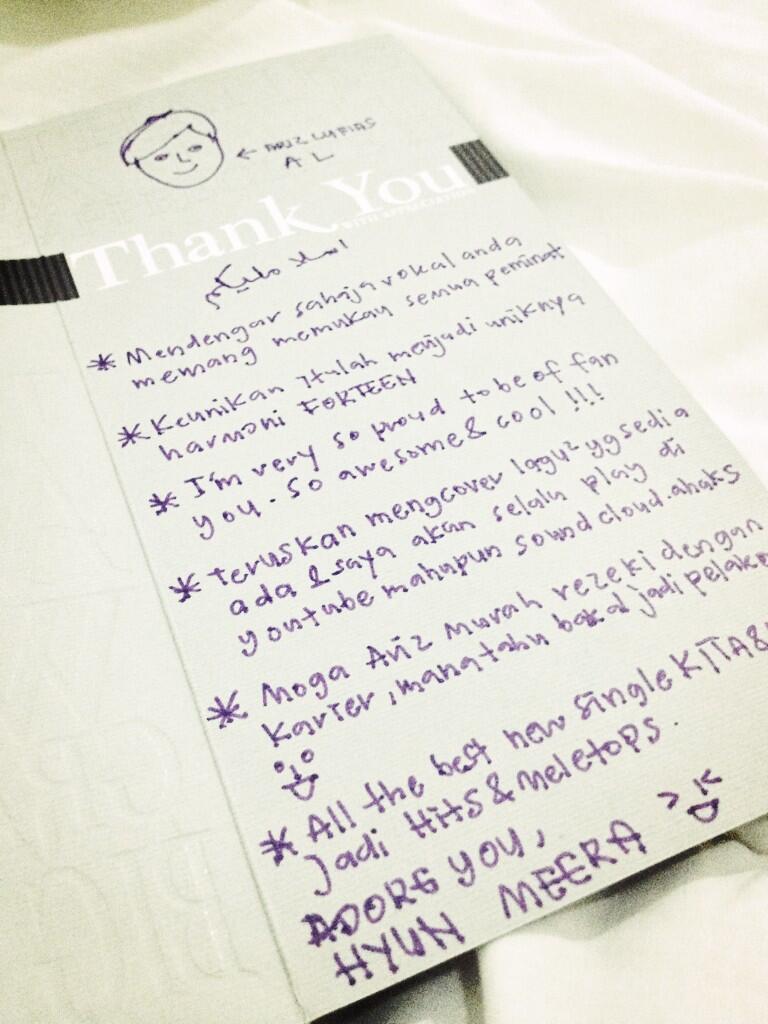 ← ARIZ LUFIAS
A L
Thank You
WITH APPRECIATION
اسلا مليكم
* Mendengar sahaja vokal anda
memang memukau semua peminat
* Keunikan itulah menjadi uniknya
harmoni FORTEEN
* I'm very so proud to be of fan
you. so awesome & cool !!!
* teruskan mengcover lagu² yg sedia
ada & saya akan selalu play di
youtube mahupun soundcloud. ahaks
* Moga Ariz murah rezeki dengan
karier, mana tahu bakal jadi pelako
* All the best new single KITA &
jadi Hits & meletops.
ADORE YOU,
HYUN MEERA